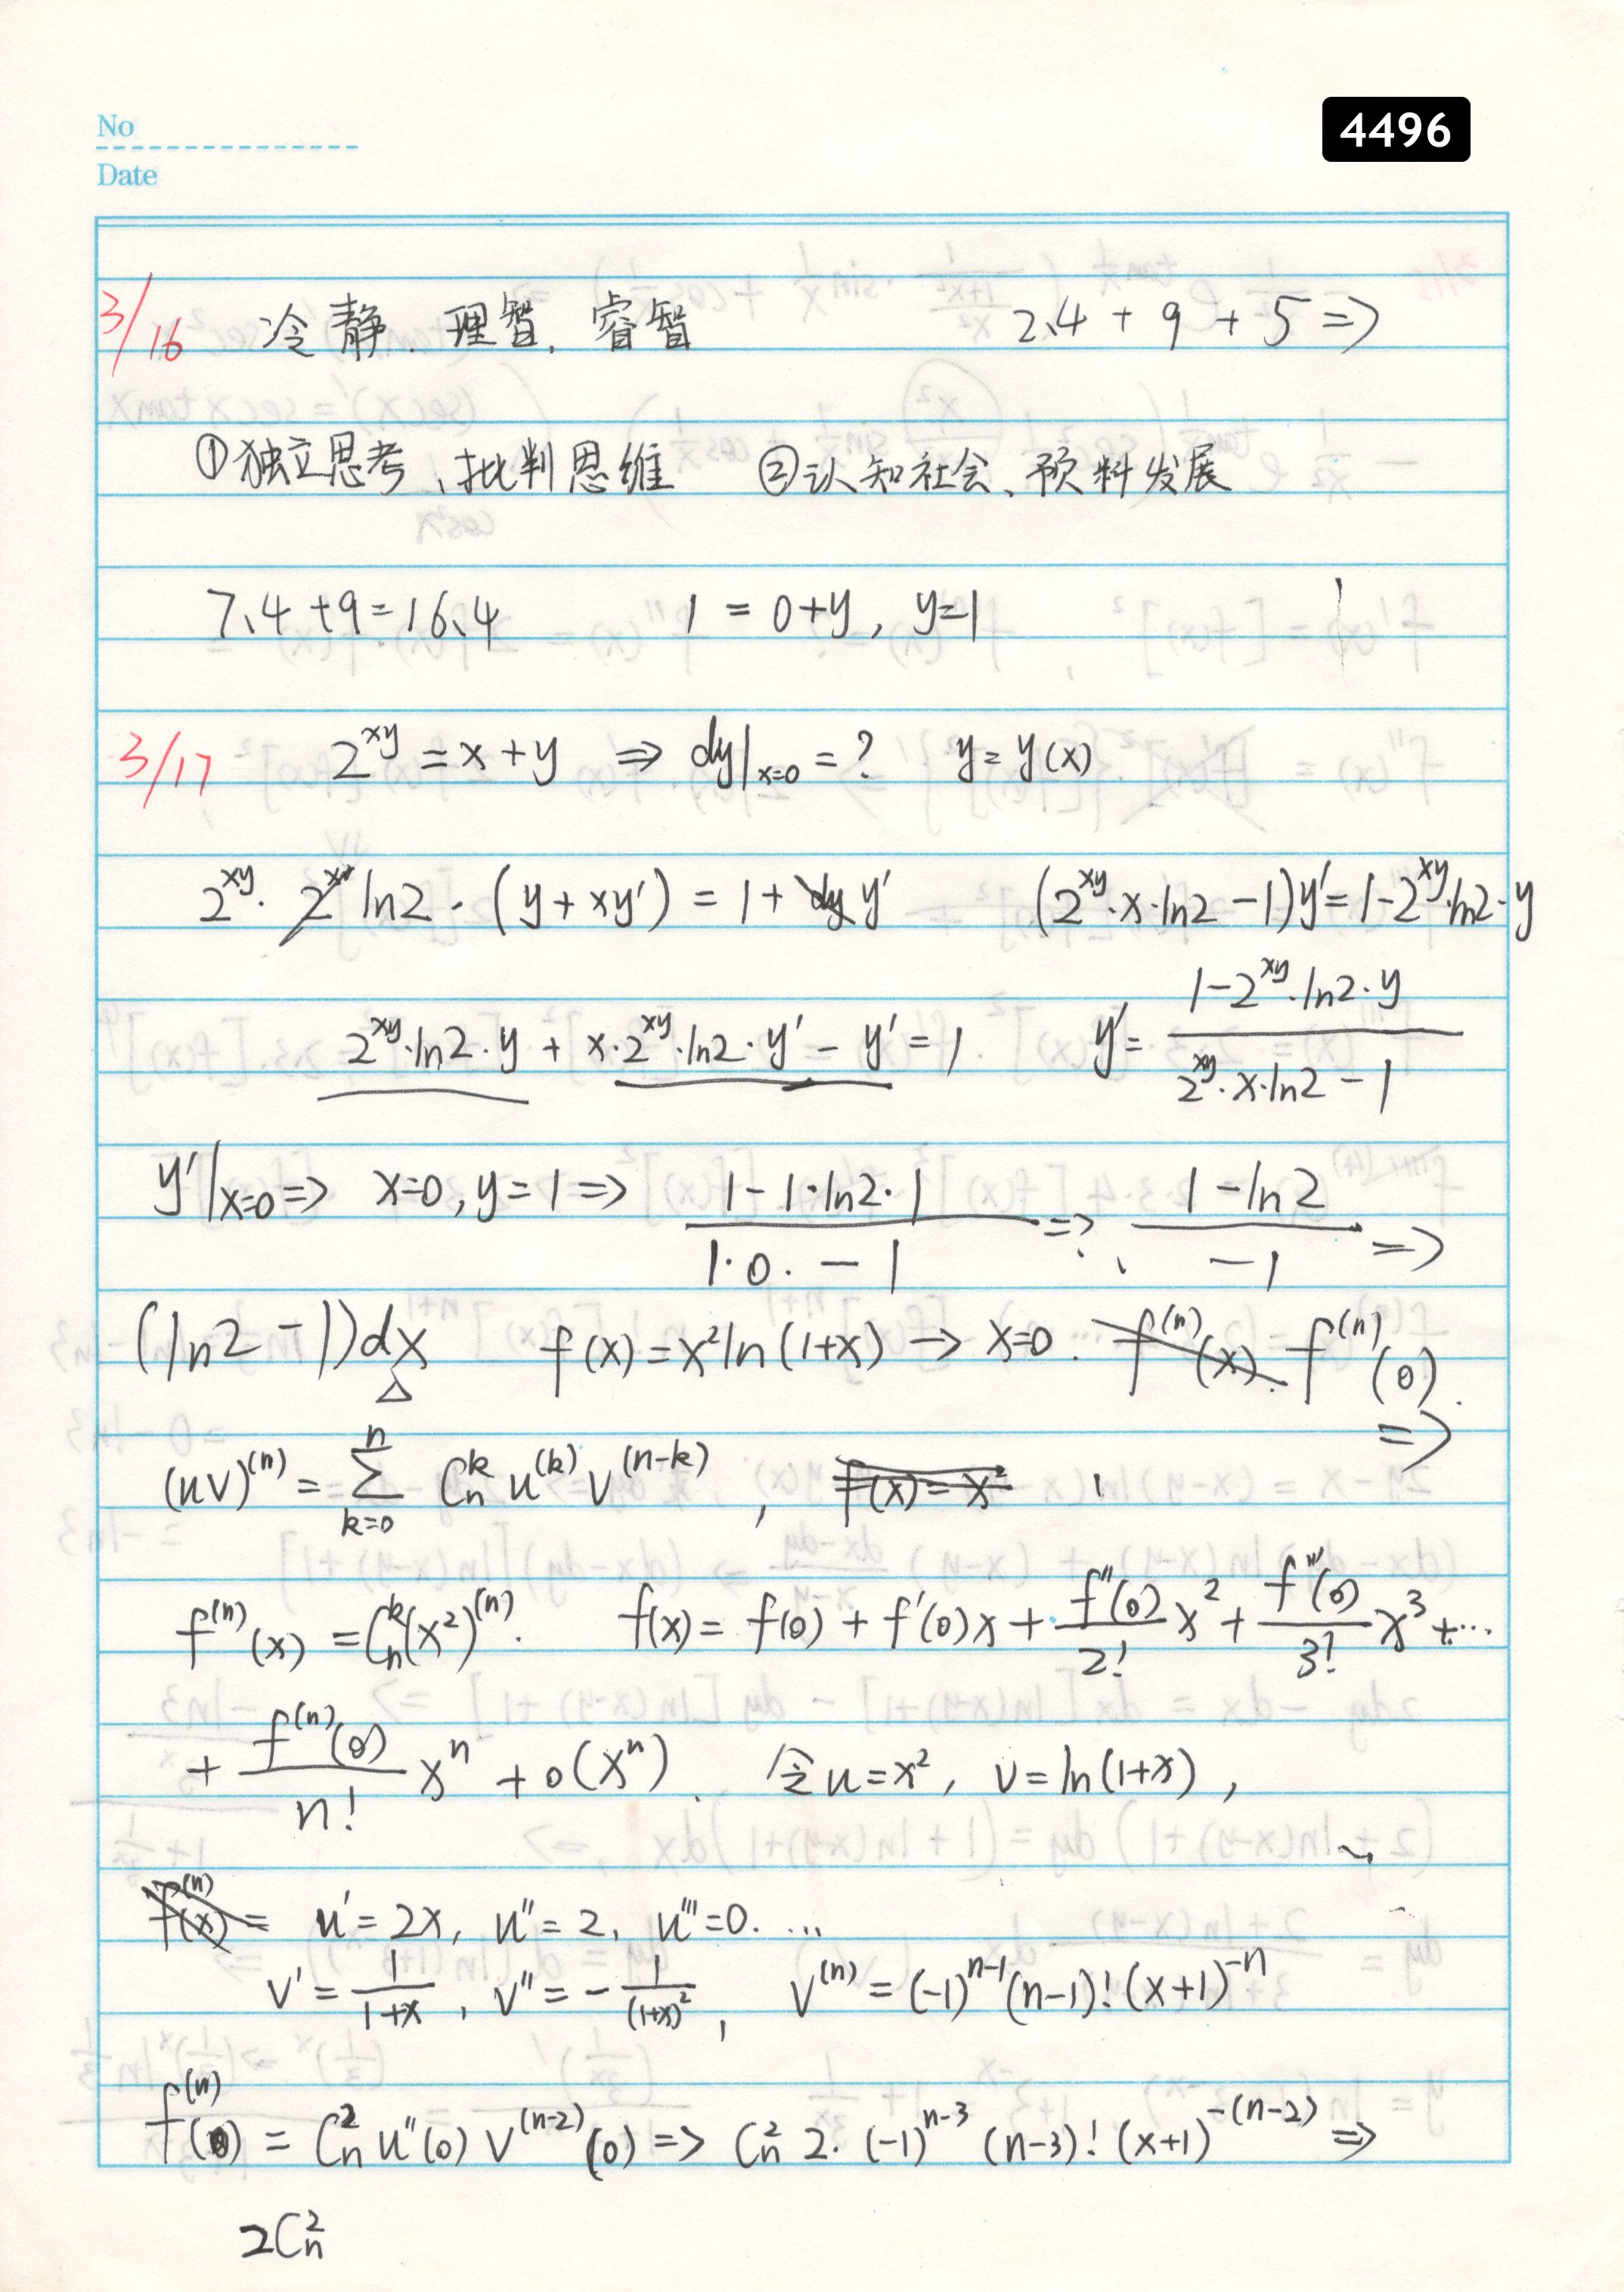 No
4496
Date
3/16 冷静、理智、睿智 2.4 + 9 + 5 =>
①独立思考、批判思维 ②认知社会、预料发展
7.4 + 9 = 16.4 1 = 0+y, y=1
3/17 2^{xy} = x + y => dy|_{x=0} = ? y = y(x)
2^{xy} · ln2 · (y + xy') = 1 + y' (2^{xy}·x·ln2 - 1)y' = 1 - 2^{xy}·ln2·y
2^{xy}·ln2·y + x·2^{xy}·ln2·y' - y' = 1 y' = \frac{1-2^{xy}·ln2·y}{2^{xy}·x·ln2 - 1}
y'|_{x=0} => x=0, y=1 => \frac{1-1·ln2·1}{1·0. - 1} => \frac{1-ln2}{-1} =>
(ln2 - 1)dx △ f(x) = x²ln(1+x) → x=0. f^{(n)}(x) f^{(n)}(0). =>
(uv)^{(n)} = \sum_{k=0}^{n} C_n^k u^{(k)} v^{(n-k)} , f(x) = x²
f^{(n)}(x) = C_n^k (x²)^{(n)}. f(x) = f(0) + f'(0)x + \frac{f''(0)}{2!}x² + \frac{f'''(0)}{3!}x³ + ...
+ \frac{f^{(n)}(0)}{n!}x^n + o(x^n). 令u=x², v=ln(1+x),
f^{(n)}(x) = u' = 2x, u'' = 2, u''' = 0. ...
v' = \frac{1}{1+x}, v'' = -\frac{1}{(1+x)²}, v^{(n)} = (-1)^{n-1}(n-1)!(x+1)^{-n}
f^{(n)}(0) = C_n^2 u''(0) v^{(n-2)}(0) => C_n^2 2·(-1)^{n-3}(n-3)!(x+1)^{-(n-2)} =>
2C_n^2